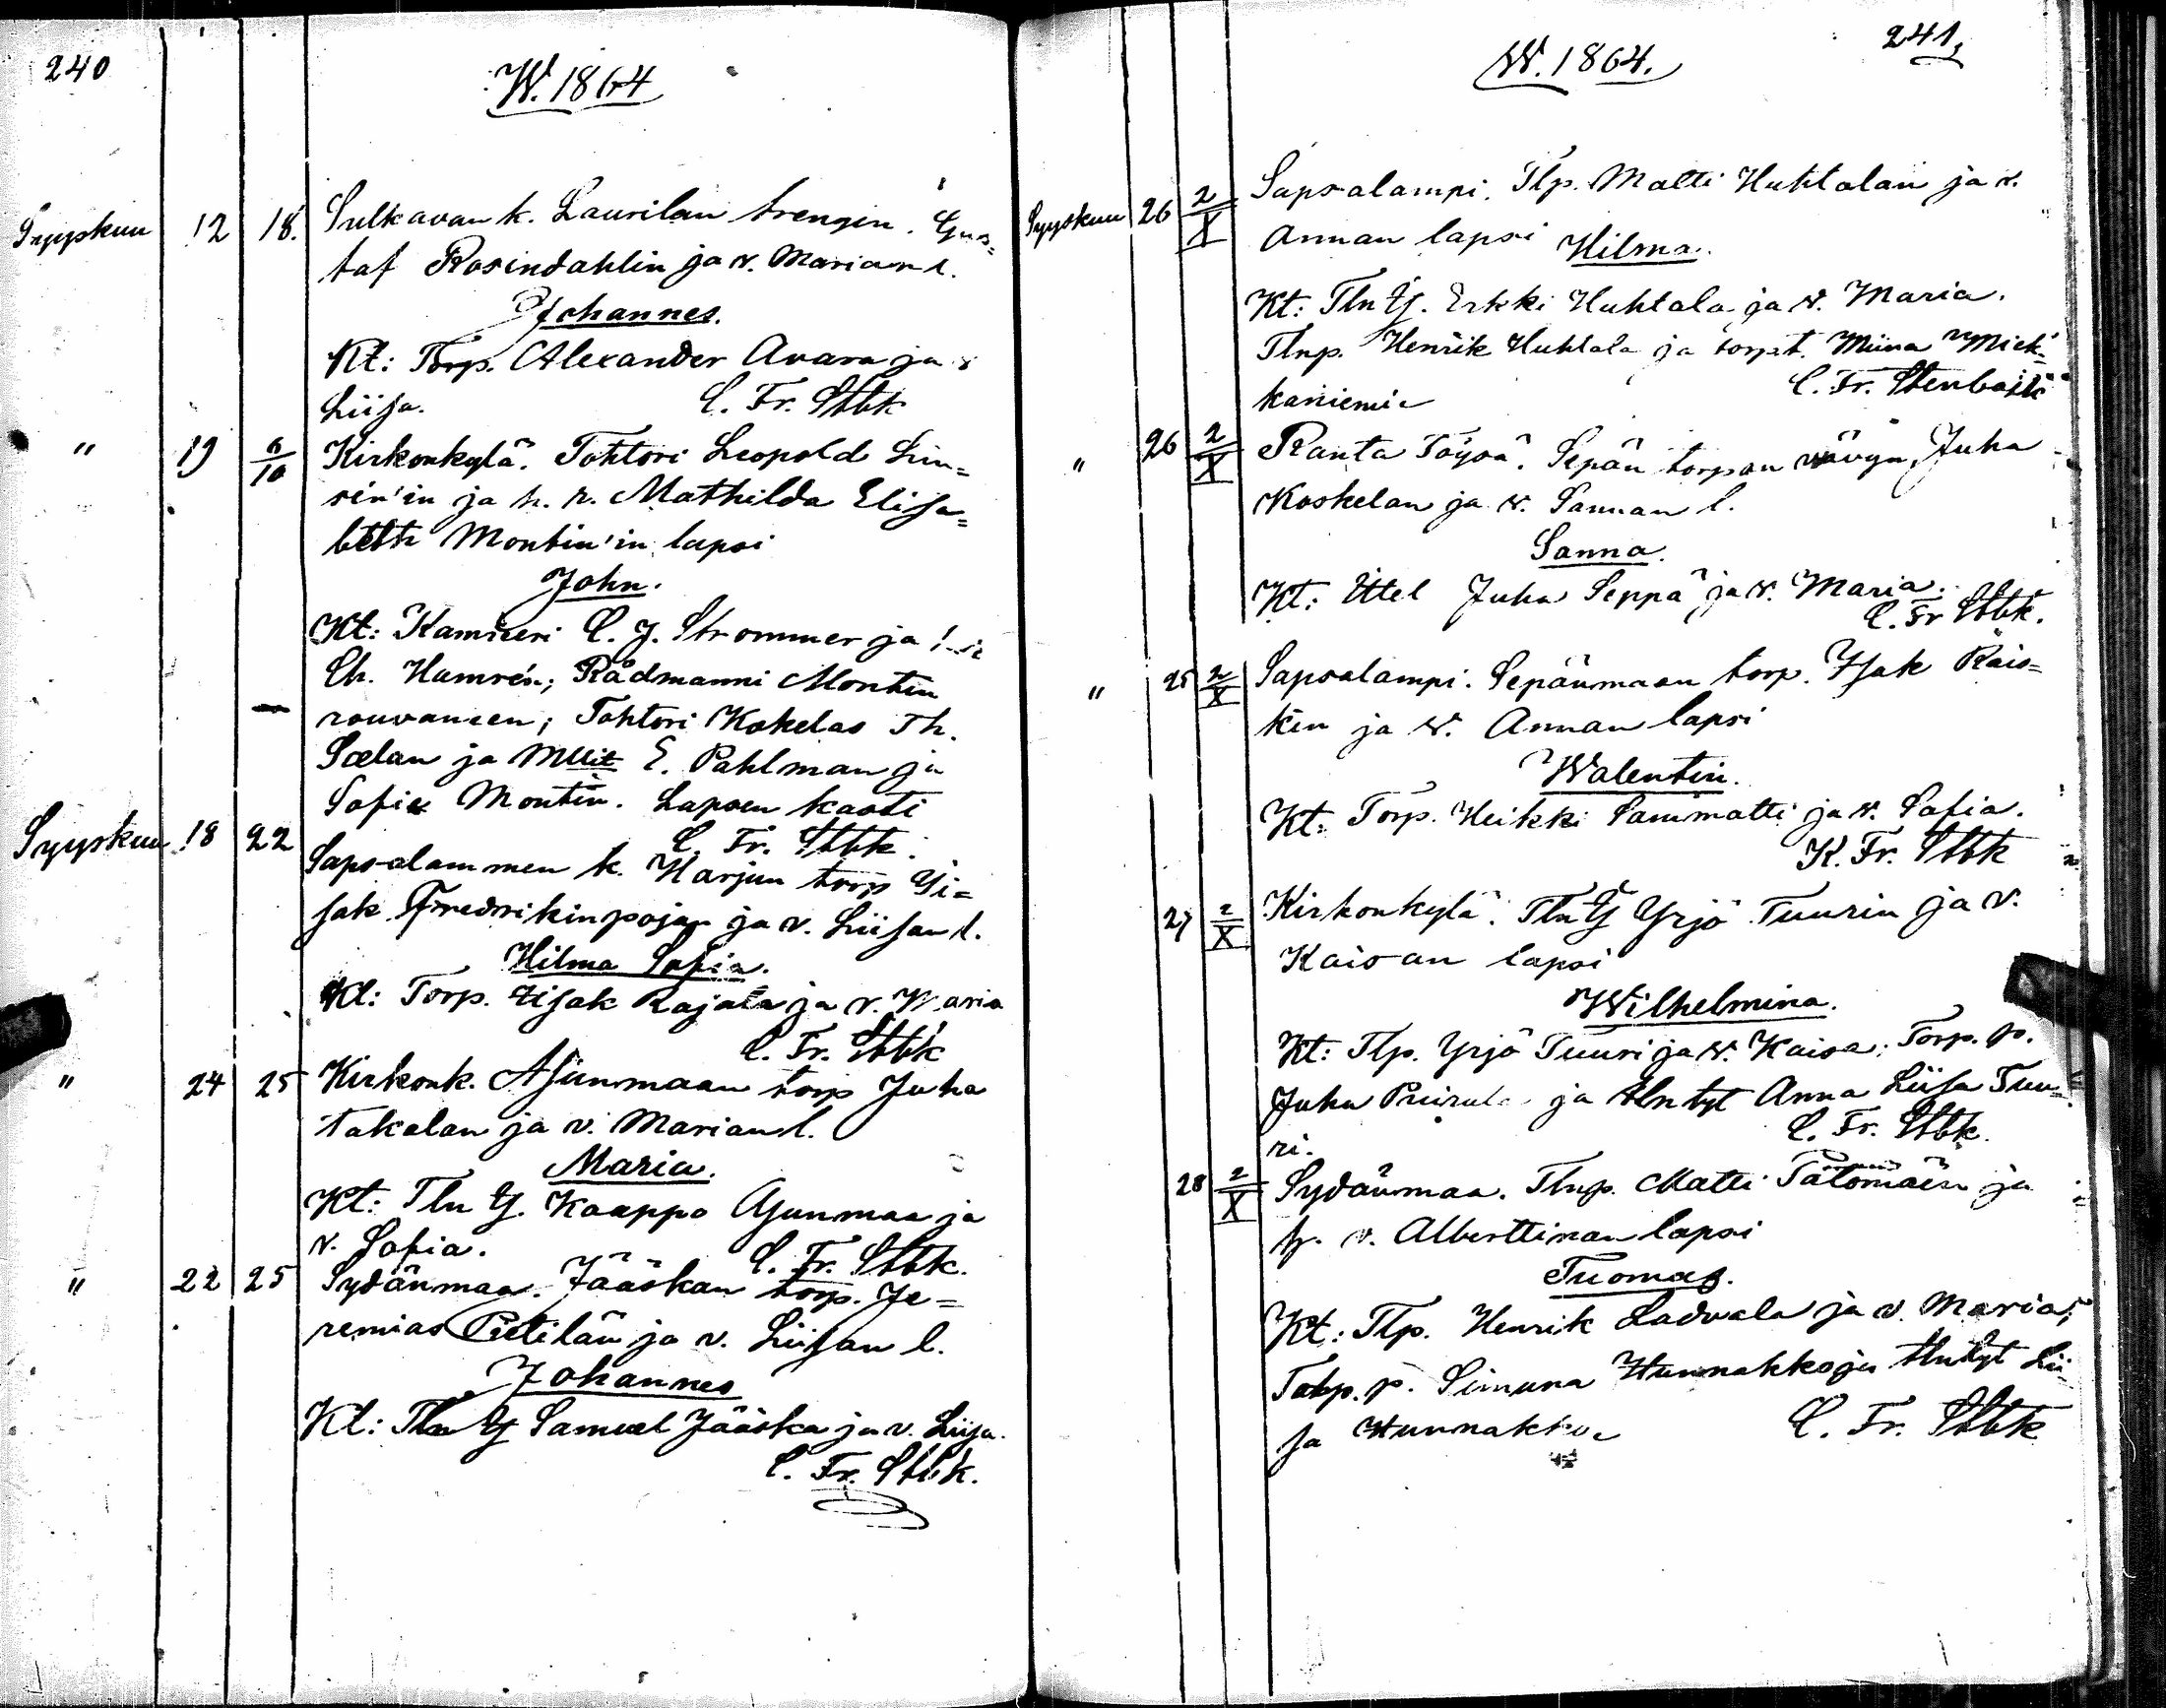 240
W. 1864
Syyskuu 12 18. Sulkavan k. Laurilan trengin Gus=
taf Rosindahlin ja v. Marian l.
Johannes.
Kt: Torp. Alexander Avara ja v
Liisa. C. Fr. Stbk
" 19 6/10 Kirkonkylä. Tohtori Leopold Lin=
sén'in ja h. r. Mathilda Elisa=
beth Montin'in lapsi
John.
Kt: Kamreeri C. J. Strommer ja
Ch. Hamrén; Rådmanni Montin
rouvaneen; Tohtori Kokelas Th.
Sælan ja Mllit E. Pahlman ja
Sofie Montin. Lapsen kasti
C. Fr. Stbk.
Syyskuu 18 22 Sapsalammen k. Harjun torp Ii=
sak Fredrikinpojan ja v. Liisan l.
Hilma Sofia.
Kt: Torp. Iisak Rajala ja v. Maria
C. Fr. Stbk
" 24 25 Kirkonk. Asunmaan torp Juha
Takalan ja v. Marian l.
Maria.
Kt: Tln Ij. Kaappo Asunmaa ja
v. Sofia. C. Fr. Stbk.
" 22 25 Sydänmaa. Jääskan torp. Je=
remias Pietilän ja v. Liisan l.
Johannes
Kt: Tln Ij Samuel Jääska ja v. Liisa.
C. Fr. Stbk.
241
W. 1864.
Syyskuu 26 2/X Sapsalampi. Tlp. Matti Huhtalan ja v.
Annan lapsi Hilma.
Kt: Tln Ij. Erkki Huhtala ja v. Maria.
Tlnp. Henrik Huhtala ja torp.t. Miina Miek=
kaniemi C. Fr. Stenbäck
" 26 2/X Ranta Töysä. Sepän torpan vävyn Juha
Koskelan ja v. Sannan l.
Sanna.
Kt: Ittel Juha Seppä ja v. Maria.
C. Fr Stbk.
" 25 2/X Sapsalampi. Sepänmaan torp. Isak Räis=
kin ja v. Annan lapsi
Walentin.
Kt: Torp. Heikki Sammatti ja v. Sofia.
K. Fr. Stbk
27 2/X Kirkonkylä. Tln Ij Yrjö Tuurin ja v.
Kaisan lapsi
Wilhelmina.
Kt: Tlp. Yrjö Tuuri ja v. Kaisa; Torp. p.
Juha ja tln tyt Anna Liisa Tuu=
ri. C. Fr. Stbk.
28 2/X Sydänmaa. Tlnp. Matti Tätömäen ja
h. v. Alberttinan lapsi
Tuomas.
Kt: Tlp. Henrik Ladvala ja v. Maria;
Torp. p. Simuna Hunnakko ja tln tyt Lii
sa Hunnakko C. Fr. Stbk